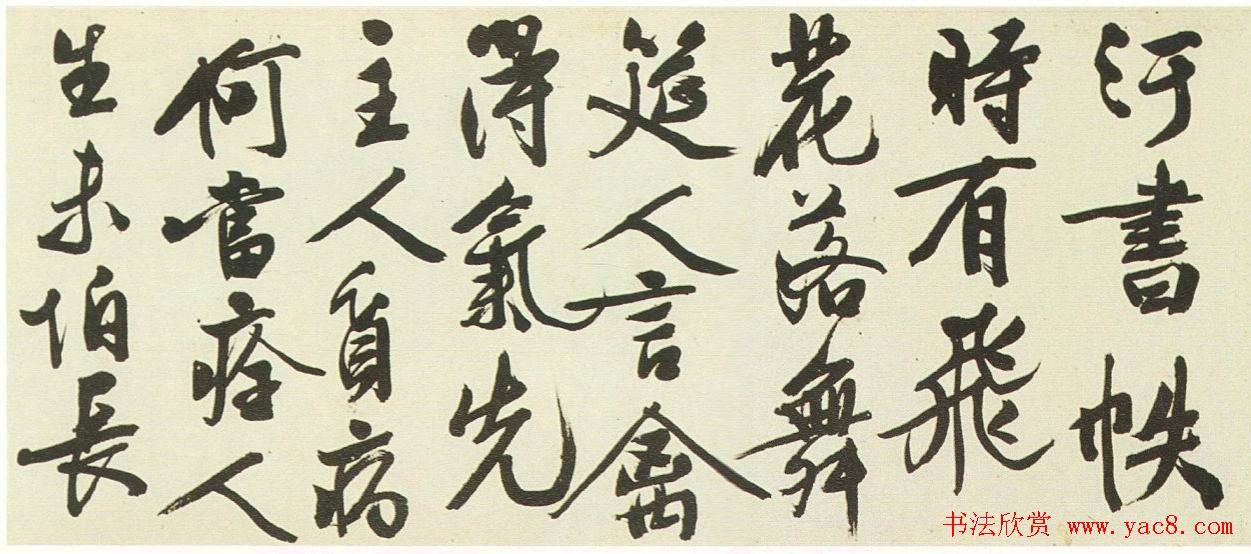 汙書帙
時有飛
花落舞
筵人言禽
得氣先
主人貧病
何當痊人
生未怕長
书法欣赏 www.yac8.com